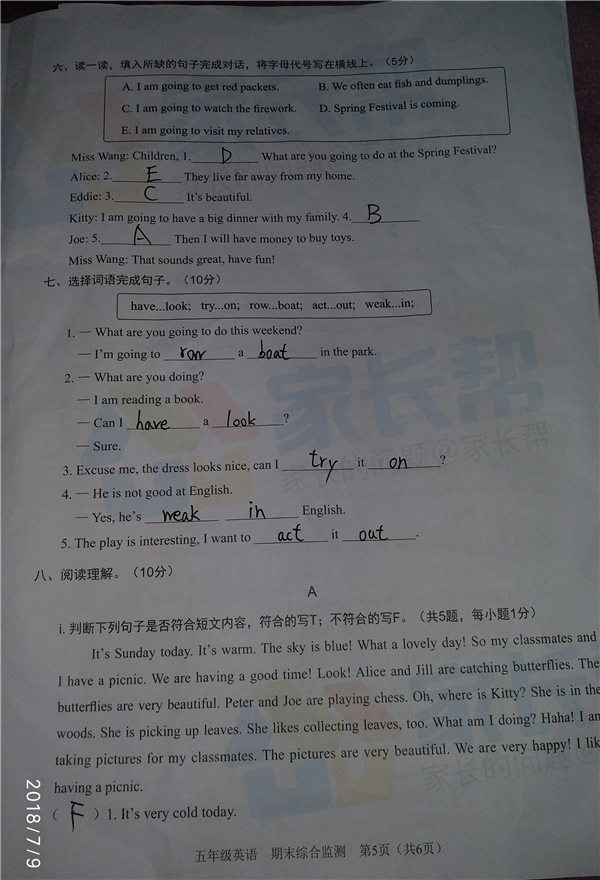 六、读一读，填入所缺的句子完成对话，将字母代号写在横线上。（5分）
A. I am going to get red packets. B. We often eat fish and dumplings.
C. I am going to watch the firework. D. Spring Festival is coming.
E. I am going to visit my relatives.
Miss Wang: Children, 1. D What are you going to do at the Spring Festival?
Alice: 2. E They live far away from my home.
Eddie: 3. C It's beautiful.
Kitty: I am going to have a big dinner with my family. 4. B
Joe: 5. A Then I will have money to buy toys.
Miss Wang: That sounds great, have fun!
七、选择词语完成句子。（10分）
have...look; try...on; row...boat; act...out; weak...in;
1. — What are you going to do this weekend?
— I'm going to row a boat in the park.
2. — What are you doing?
— I am reading a book.
— Can I have a look ?
— Sure.
3. Excuse me, the dress looks nice, can I try it on ?
4. — He is not good at English.
— Yes, he's weak in English.
5. The play is interesting, I want to act it out .
八、阅读理解。（10分）
A
i. 判断下列句子是否符合短文内容，符合的写T；不符合的写F。（共5题，每小题1分）
It's Sunday today. It's warm. The sky is blue! What a lovely day! So my classmates and
I have a picnic. We are having a good time! Look! Alice and Jill are catching butterflies. The
butterflies are very beautiful. Peter and Joe are playing chess. Oh, where is Kitty? She is in the
woods. She is picking up leaves. She likes collecting leaves, too. What am I doing? Haha! I am
taking pictures for my classmates. The pictures are very beautiful. We are very happy! I lik
having a picnic.
（ F ）1. It's very cold today.
五年级英语 期末综合监测 第5页（共6页）
2018/7/9
家长帮
@家长帮